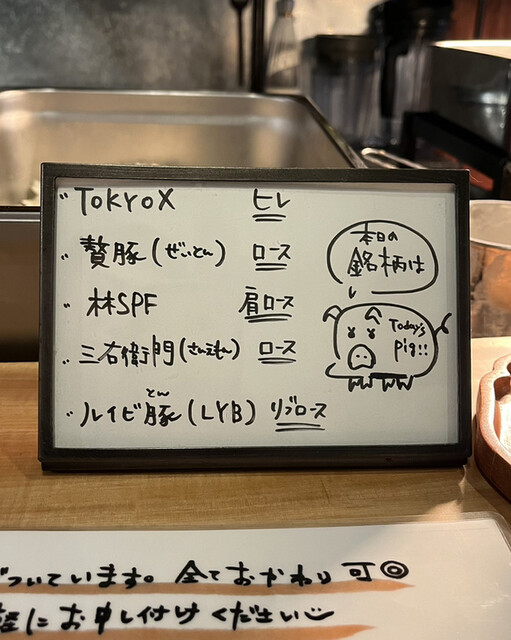 TOKYO X ヒレ
贅豚(ぜいとん) ロース
林SPF 肩ロース
三右衛門(さんえもん) ロース
ルイビ豚(LYB) リブロース
とん
本日の
銘柄は
Today's
Pig!!
ついています。全ておかわり可◎
軽にお申し付けください